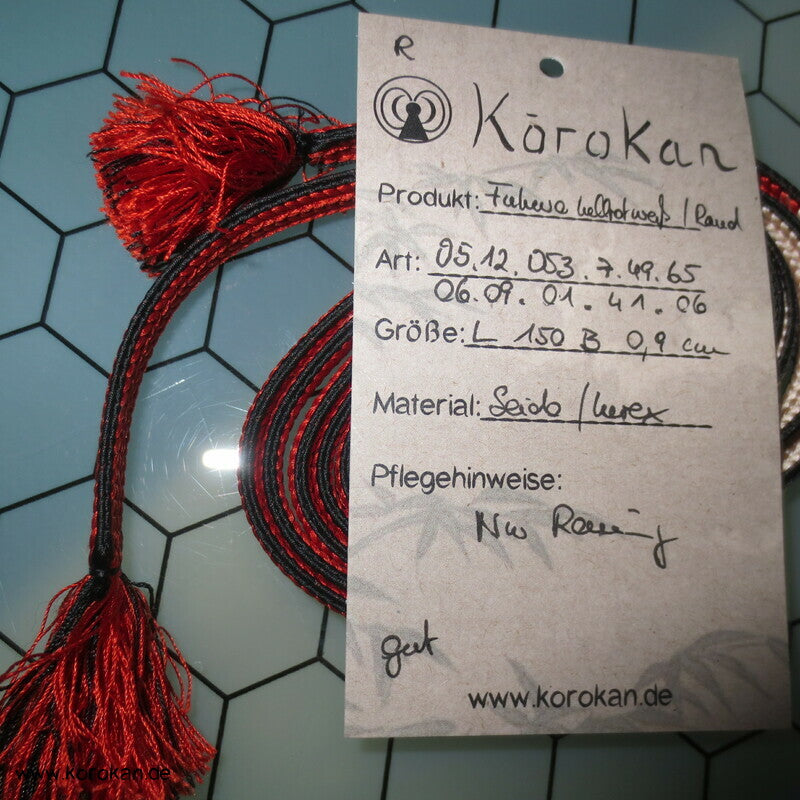 R
KōroKan
Produkt: / Rand
Art: 05.12.053.7.49.65
06.09.01.41.06
Größe: L 150 B 0,9 cm
Material: Seide / Lurex
Pflegehinweise:
gut
www.korokan.de
www.korokan.de